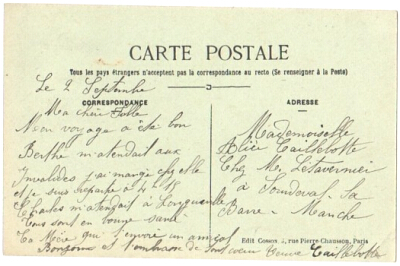 CARTE POSTALE
Tous les pays étrangers n'acceptent pas la correspondance au recto (Se renseigner à la Poste)
Le 2 Septembre
CORRESPONDANCE
ADRESSE
Ma chère Fille
Mon voyage a été bon
Berthe m'atendait aux
Invalides j'ai mangé chez elle
et je suis repartie à 4
Charles m'atendait à Longueville
Tous sont en bonne santé
Ta Mère qui t'envoie un
Bonjour et t'embrasse de tout coeur Veuve Caillebotte
Mademoiselle
Alice Caillebotte
Chez Mr Letavernier
à Sourdeval-la
Barre - Manche
Edit. Cosson, rue Pierre Chausson, Paris